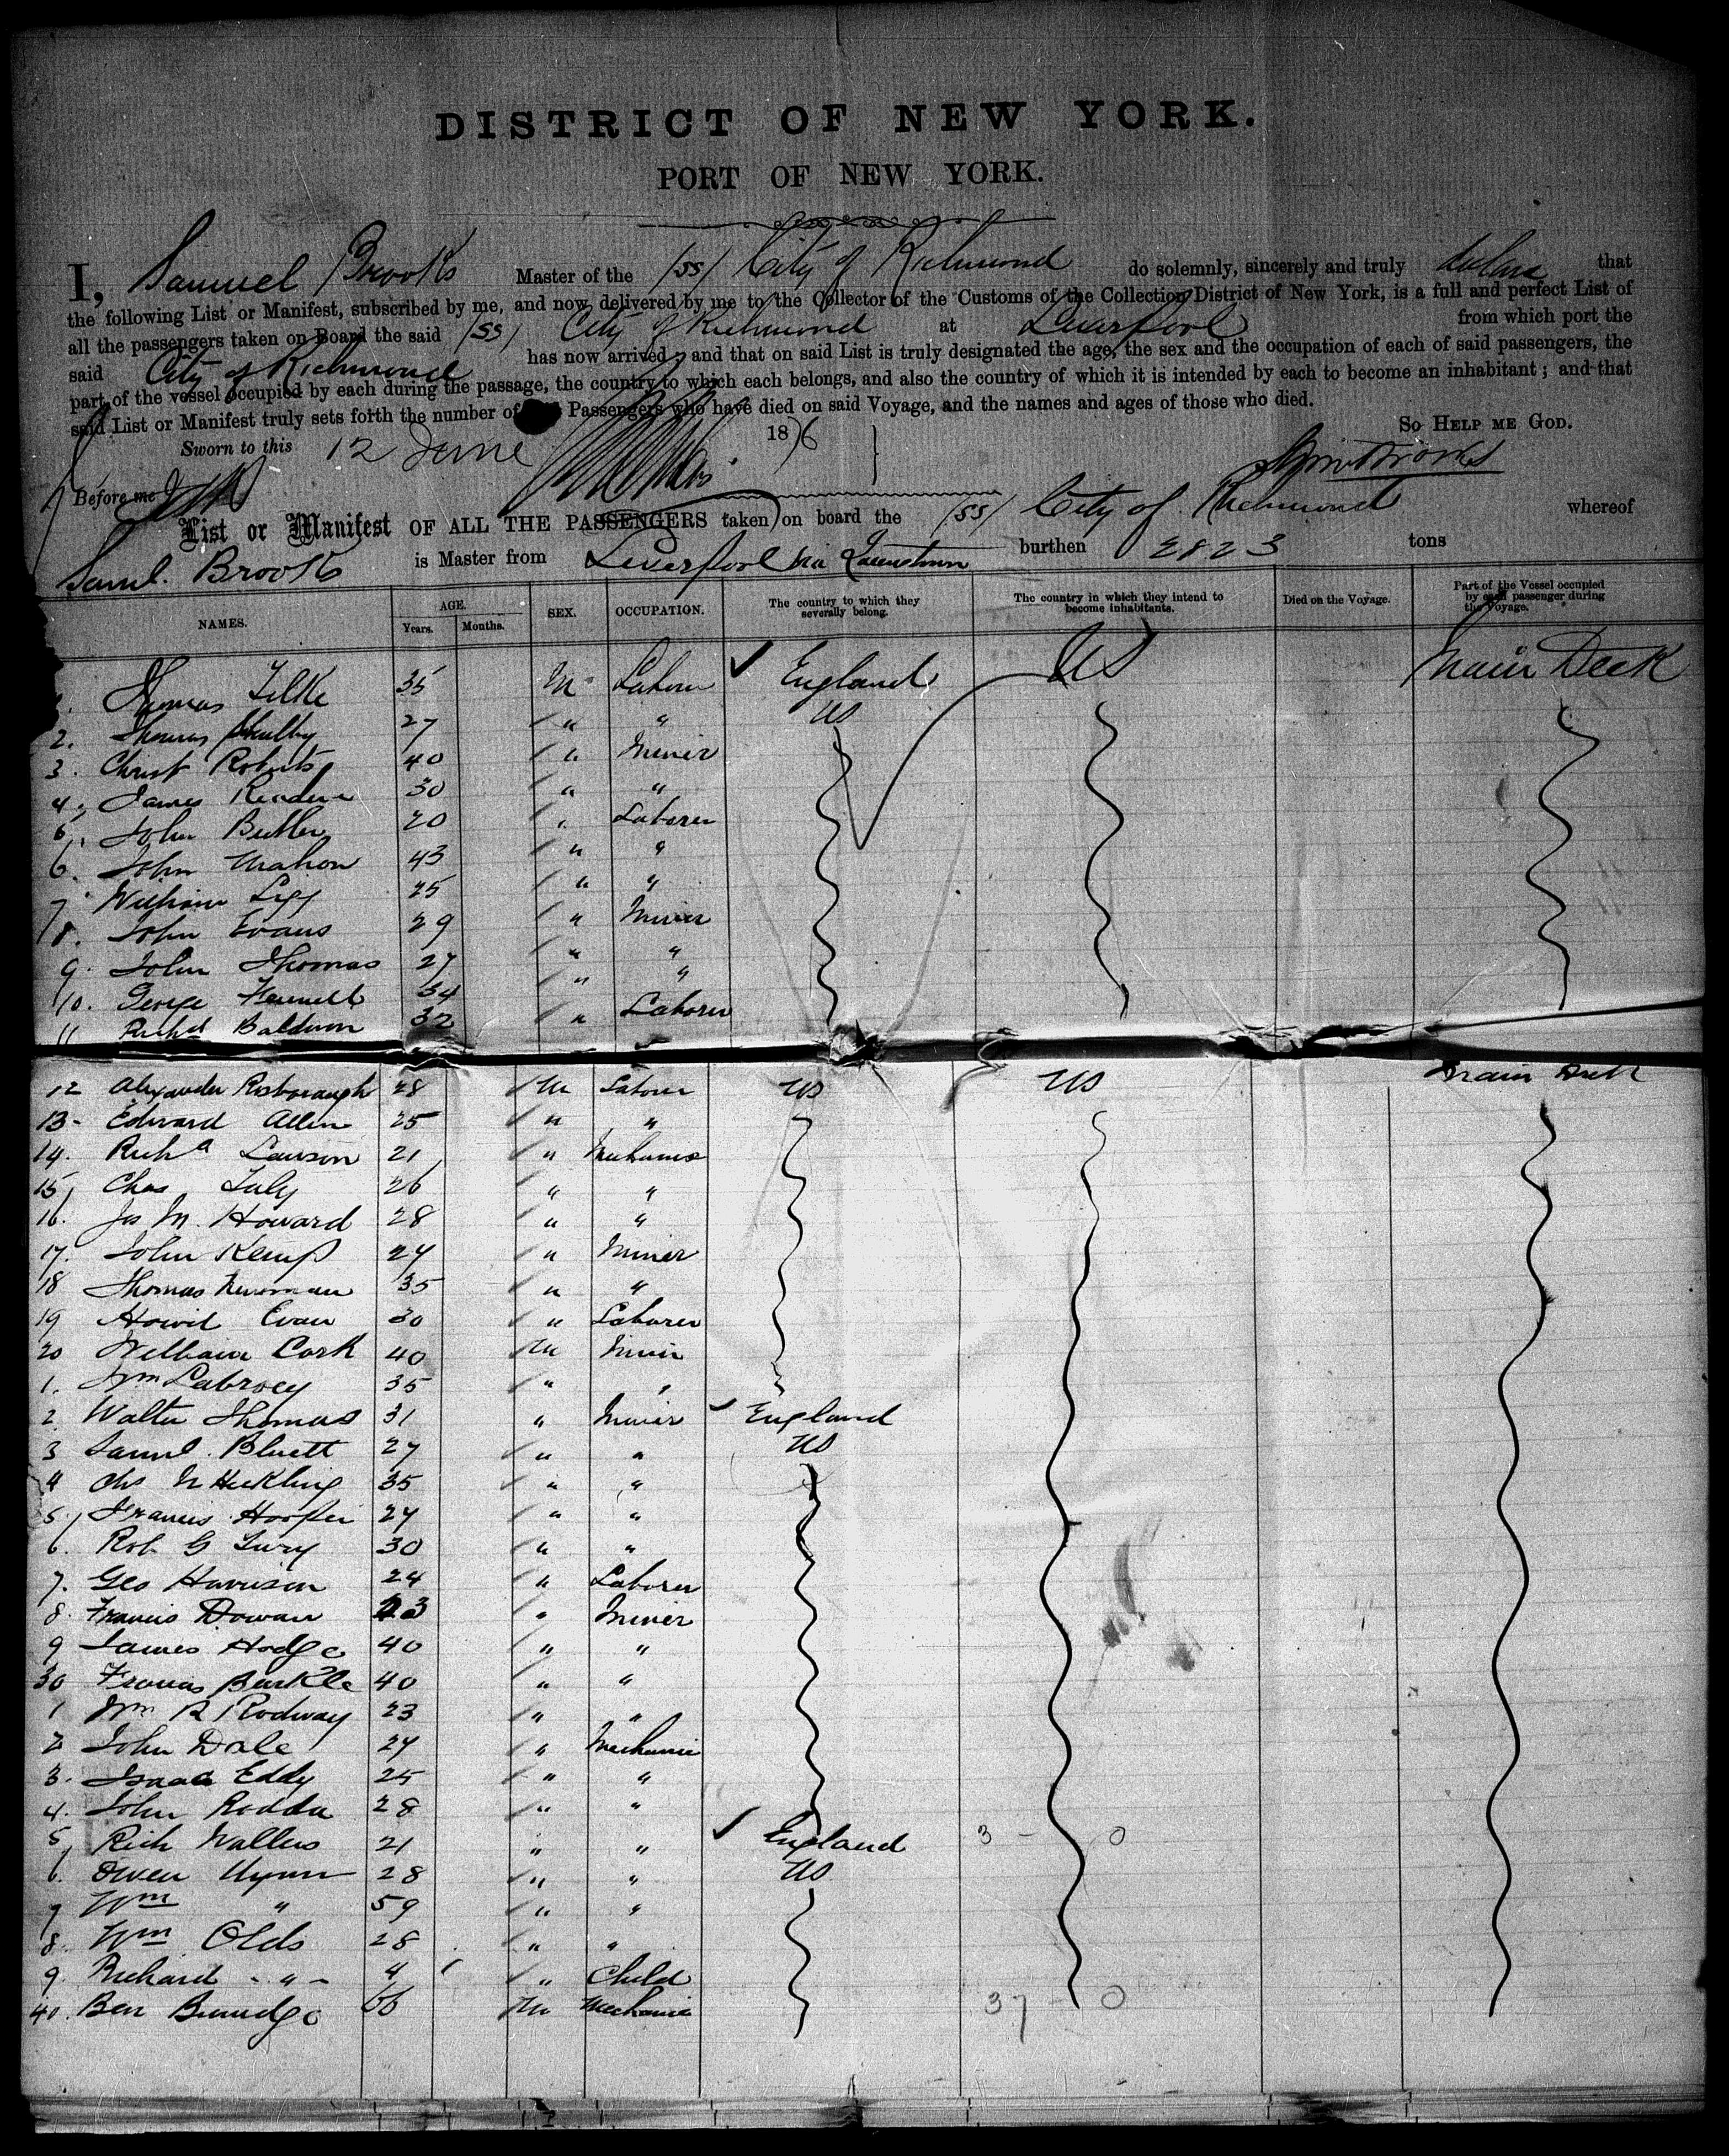 DISTRICT OF NEW YORK.
PORT OF NEW YORK.
I, Samuel Brooks Master of the (SS) City of Richmond do solemnly, sincerely and truly declare that
the following List or Manifest, subscribed by me, and now delivered by me to the Collector of the Customs of the Collection District of New York, is a full and perfect List of
all the passengers taken on Board the said (SS) City of Richmond at Liverpool from which port the
said City of Richmond has now arrived; and that on said List is truly designated the age, the sex and the occupation of each of said passengers, the
part of the vessel occupied by each during the passage, the country to which each belongs, and also the country of which it is intended by each to become an inhabitant; and that
said List or Manifest truly sets forth the number of Passengers who have died on said Voyage, and the names and ages of those who died.
So Help me God.
Sworn to this 12 June 1876
Before me
List or Manifest OF ALL THE PASSENGERS taken on board the (SS) City of Richmond whereof
Saml. Brooks is Master from Liverpool via Queenstown burthen 2823 tons
NAMES. AGE. Years. Months. SEX. OCCUPATION. The country to which they severally belong. The country in which they intend to become inhabitants. Died on the Voyage. Part of the Vessel occupied by each passenger during the Voyage.
Thomas 35 M Laborer England US Main Deck
2. Thomas 27 " " US
3. Christ Roberts 40 " Miner
4. James 30 " "
John Butler 20 " Laborer
6. John Mahon 43 " "
7 William 25 " "
8. John Evans 29 " Miner
9. John Thomas 27 " "
10. George 34 " "
11 Richd Baldwin 32 " Laborer
12 Alexander Rosborough 28 M Laborer US US Main Deck
13. Edward Allen 25 " "
14. Richd Lawson 21 " Mechanic
15 Chas 26 " "
16. Jas M. Howard 28 " "
17. John Kemp 24 " Miner
18 Thomas Newman 35 " "
19 Evan 30 " Laborer
20 William Cork 40 M Miner
1. Wm 35 " "
2 Walter Thomas 31 " Miner England
3 Saml. Bluett 27 " " US
4 Chs 35 " "
5. Francis Hooper 24 " "
6. Rob G 30 " "
7. Geo Harrison 24 " Laborer
8. Francis 23 " Miner
9 James Hodge 40 " "
30 Francis 40 " "
1 Wm R Rodway 23 " "
2 John Dale 24 " Mechanic
3. Isaac Eddy 25 " "
4. John Rodda 28 " "
5 Rich Wallers 21 " " England 3 - 0
6. Owen 28 " " US
7 Wm " 59 " "
8. Wm Olds 28 " "
9. Richard " 4 " Child
40. Ben 66 M Mechanic 37 0